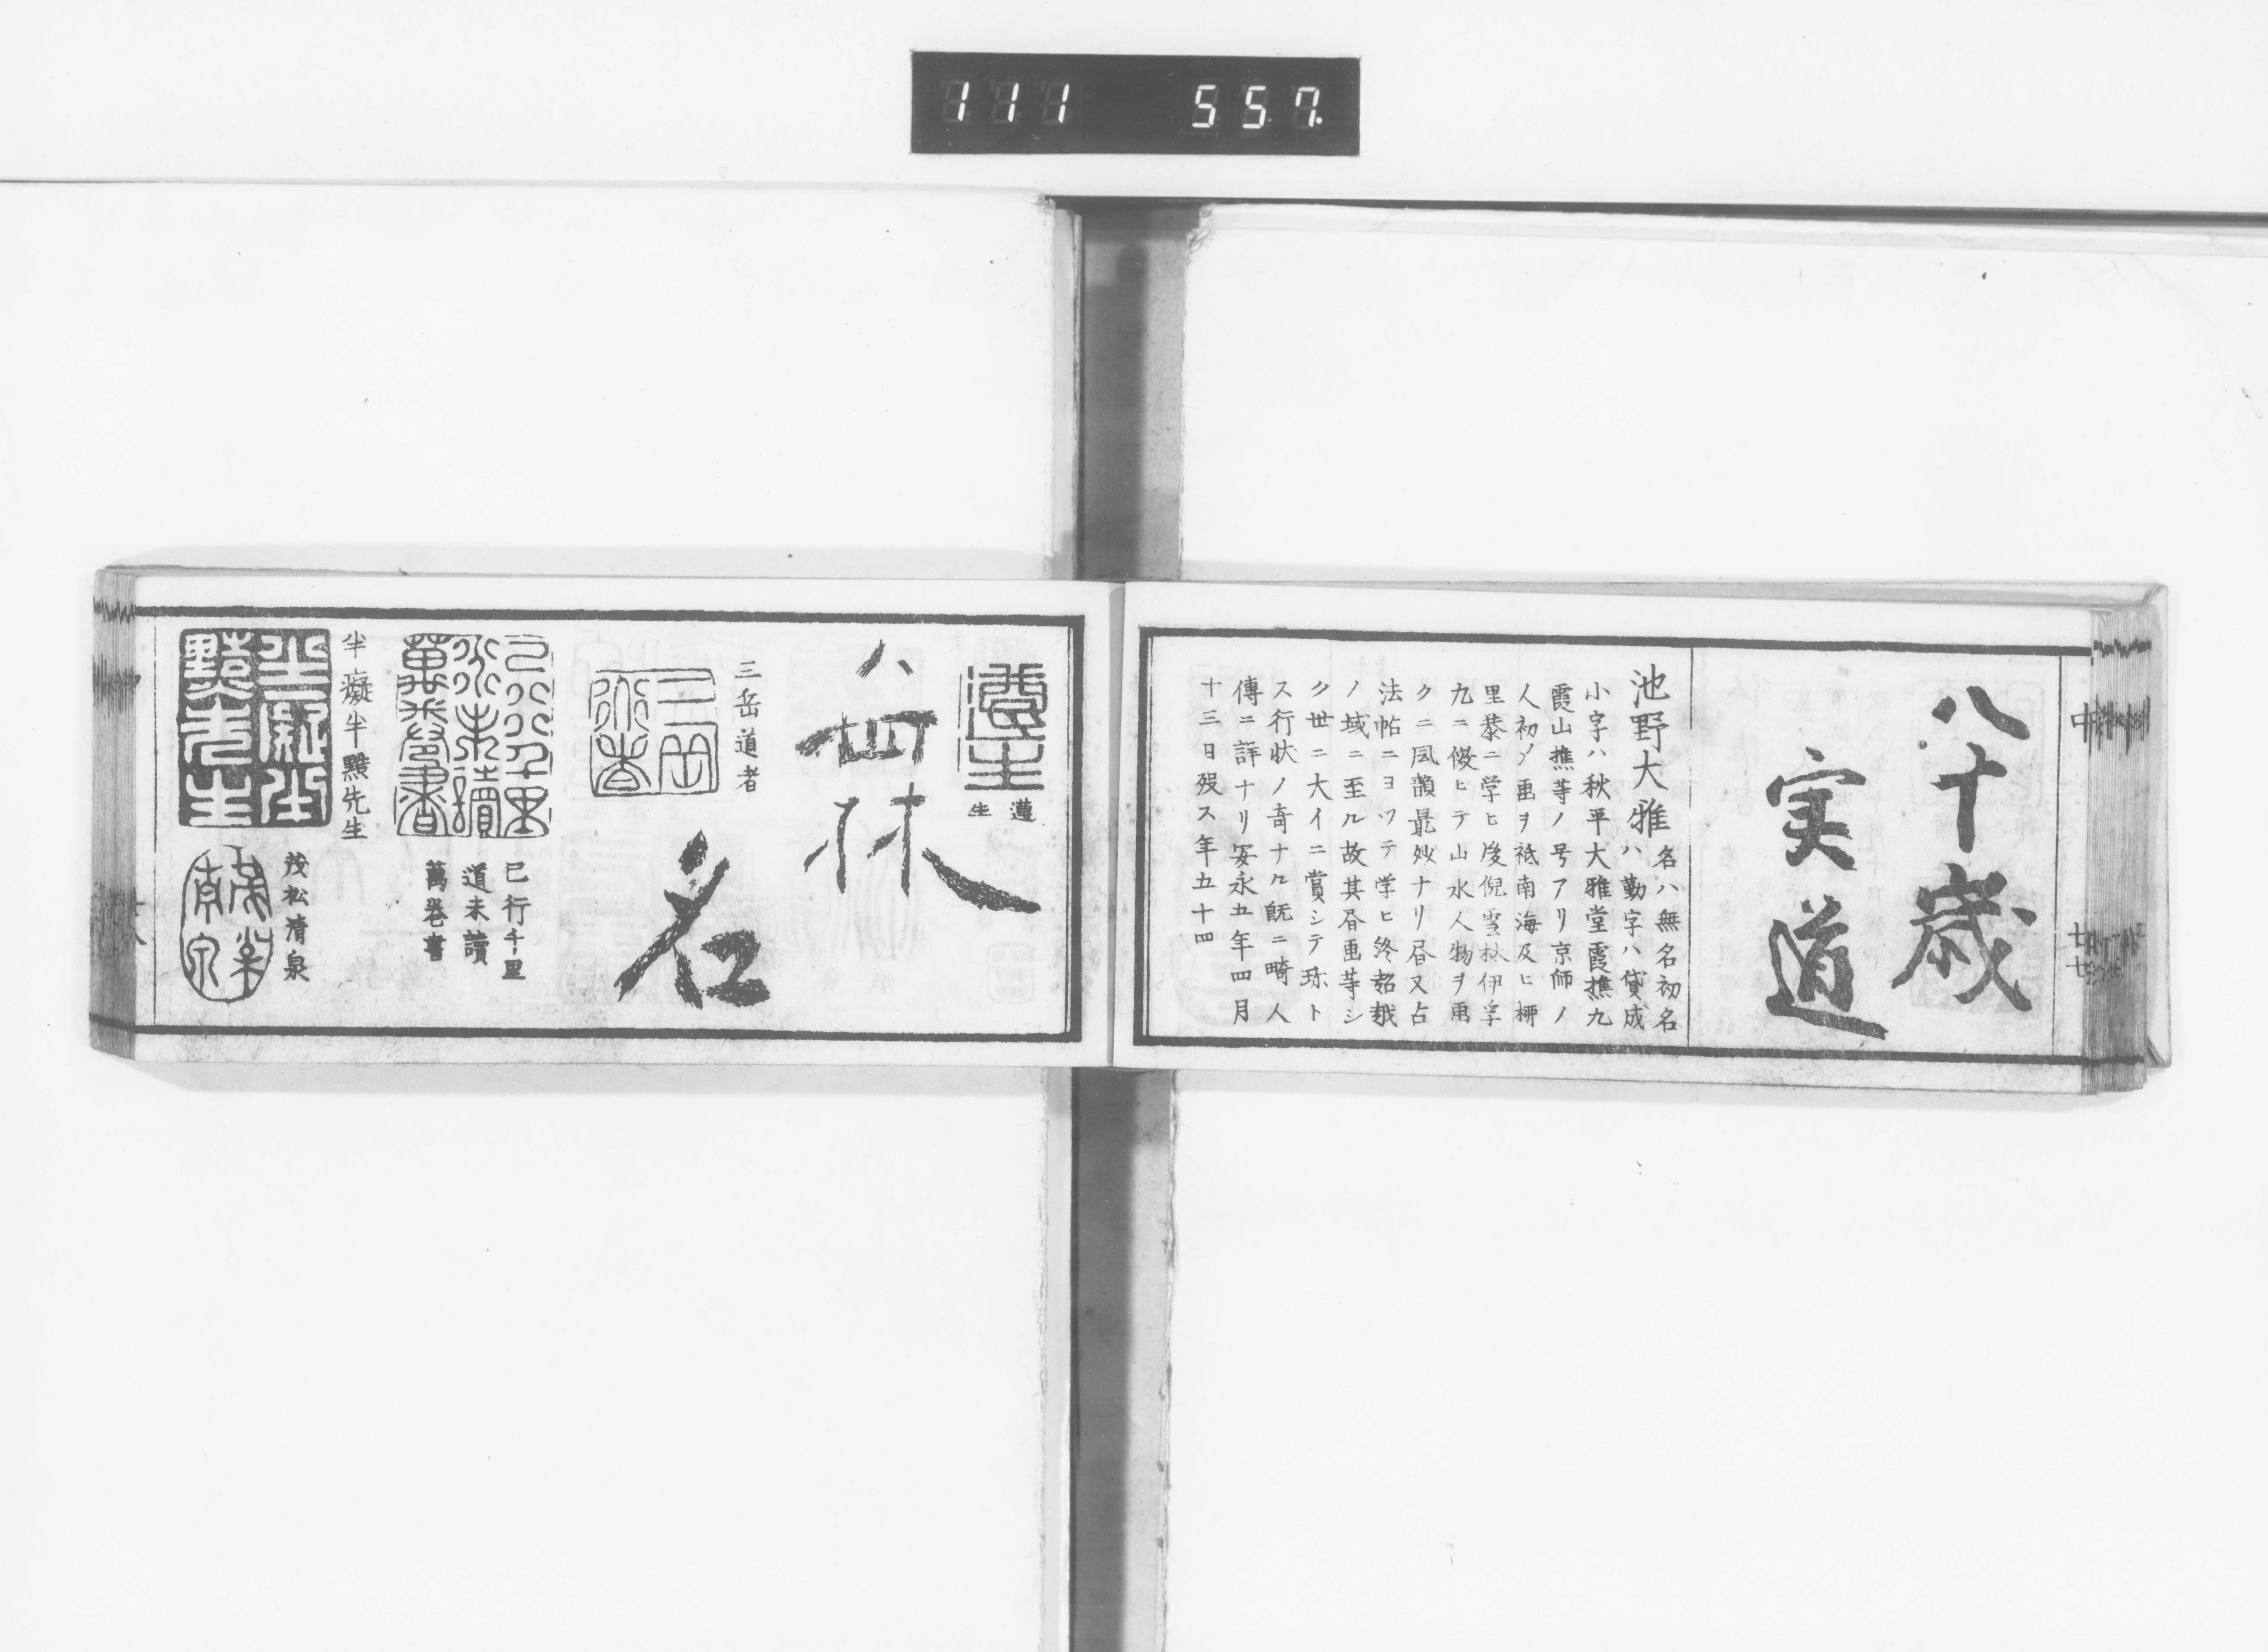 111 557.
中
七十七
八十歳
実道
池野大雅 名ハ無名初名
ハ勤字ハ貸成
小字ハ秋平大雅堂霞樵九
霞山樵等ノ号アリ京師ノ
人初メ画ヲ祗南海及ヒ柳
里恭ニ学ヒ後倪雲林伊孚
九ニ倣ヒテ山水人物ヲ画
クニ風韻最妙ナリ昼又占
法帖ニヨツテ学ヒ終超越
ノ域ニ至ル故其昼画等シ
ク世ニ大イニ賞シテ珎ト
ス行状ノ奇ナル既ニ畸人
傳ニ詳ナリ安永五年四月
十三日歿ス年五十四
遵生
遵
生
林
三岳道者
三岳
道者
名
已行千里
道未讀
萬巻書
已行千里
道未讀
萬巻書
半癡半黠先生
半癡半
黠先生
茂松清泉